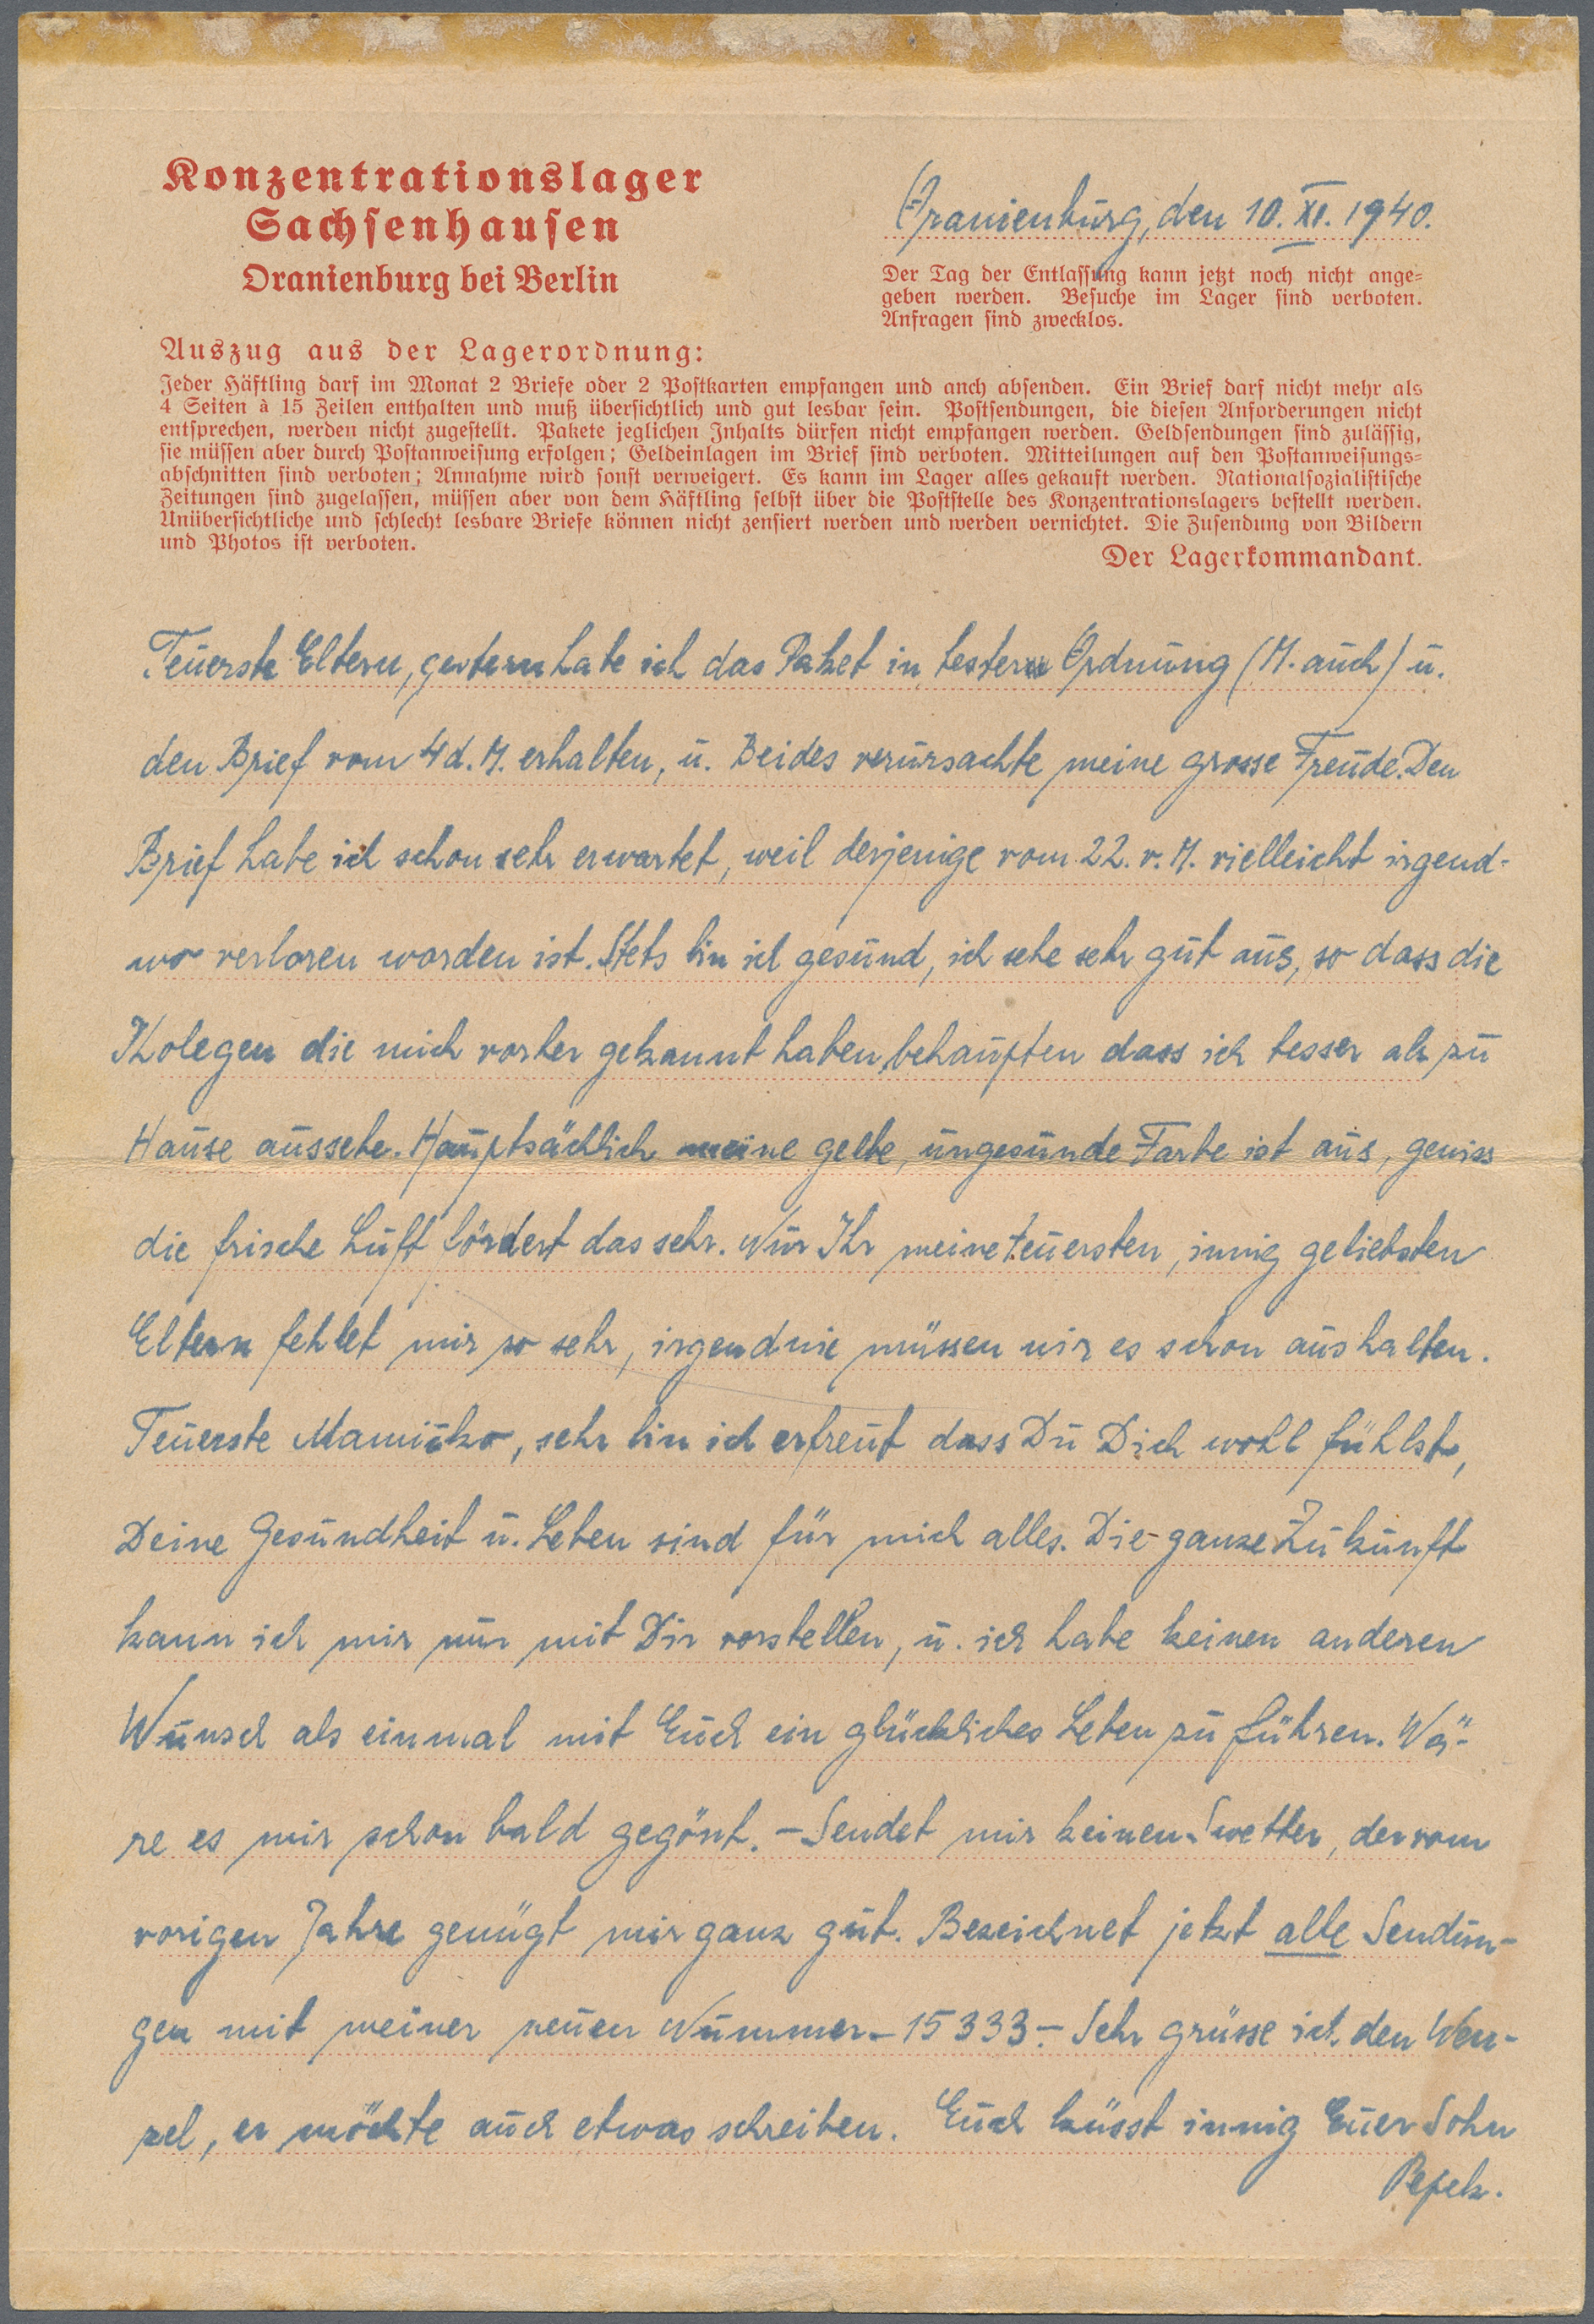 Konzentrationslager
Sachsenhausen
Oranienburg bei Berlin
Oranienburg, den 10. XI. 1940.
Der Tag der Entlassung kann jetzt noch nicht ange-
geben werden. Besuche im Lager sind verboten.
Anfragen sind zwecklos.
Auszug aus der Lagerordnung:
Jeder Häftling darf im Monat 2 Briefe oder 2 Postkarten empfangen und anch absenden. Ein Brief darf nicht mehr als
4 Seiten à 15 Zeilen enthalten und muß übersichtlich und gut lesbar sein. Postsendungen, die diesen Anforderungen nicht
entsprechen, werden nicht zugestellt. Pakete jeglichen Inhalts dürfen nicht empfangen werden. Geldsendungen sind zulässig,
sie müssen aber durch Postanweisung erfolgen; Geldeinlagen im Brief sind verboten. Mitteilungen auf den Postanweisungs-
abschnitten sind verboten; Annahme wird sonst verweigert. Es kann im Lager alles gekauft werden. Nationalsozialistische
Zeitungen sind zugelassen, müssen aber von dem Häftling selbst über die Poststelle des Konzentrationslagers bestellt werden.
Unübersichtliche und schlecht lesbare Briefe können nicht zensiert werden und werden vernichtet. Die Zusendung von Bildern
und Photos ist verboten.
Der Lagerkommandant.
Teuerste Eltern, gestern habe ich das Paket in bester Ordnung (M. auch) u.
den Brief vom 4 d. M. erhalten, u. Beides verursachte meine grosse Freude. Den
Brief habe ich schon sehr erwartet, weil derjenige vom 22. v. M. vielleicht irgend-
wo verloren worden ist. Stets bin ich gesund, ich sehe sehr gut aus, so dass die
Kolegen die mich vorher gekannt haben, behaupten dass ich besser als zu
Hause aussehe. Hauptsächlich meine gelbe, ungesunde Farbe ist aus, gewiss
die frische Luft fördert das sehr. Nur Ihr meine teuersten, innig geliebsten
Eltern fehlet mir so sehr, irgendwie müssen wir es schon aushalten.
Teuerste Mamičko, sehr bin ich erfreut dass Du Dich wohl fühlst,
Deine Gesundheit u. Leben sind für mich alles. Die ganze Zukunft
kann ich mir nur mit Dir vorstellen, u. ich habe keinen anderen
Wunsch als einmal mit Euch ein glückliches Leben zu führen. Wä-
re es mir schon bald gegönt. - Sendet mir keinen Swetter, der vom
vorigen Jahre genügt mir ganz gut. Bezeichnet jetzt alle Sendun-
gen mit meiner neuen Nummer - 15333 - Sehr grüsse ich den Wen-
zel, er möchte auch etwas schreiben. Euch küsst innig Euer Sohn
Pepek.